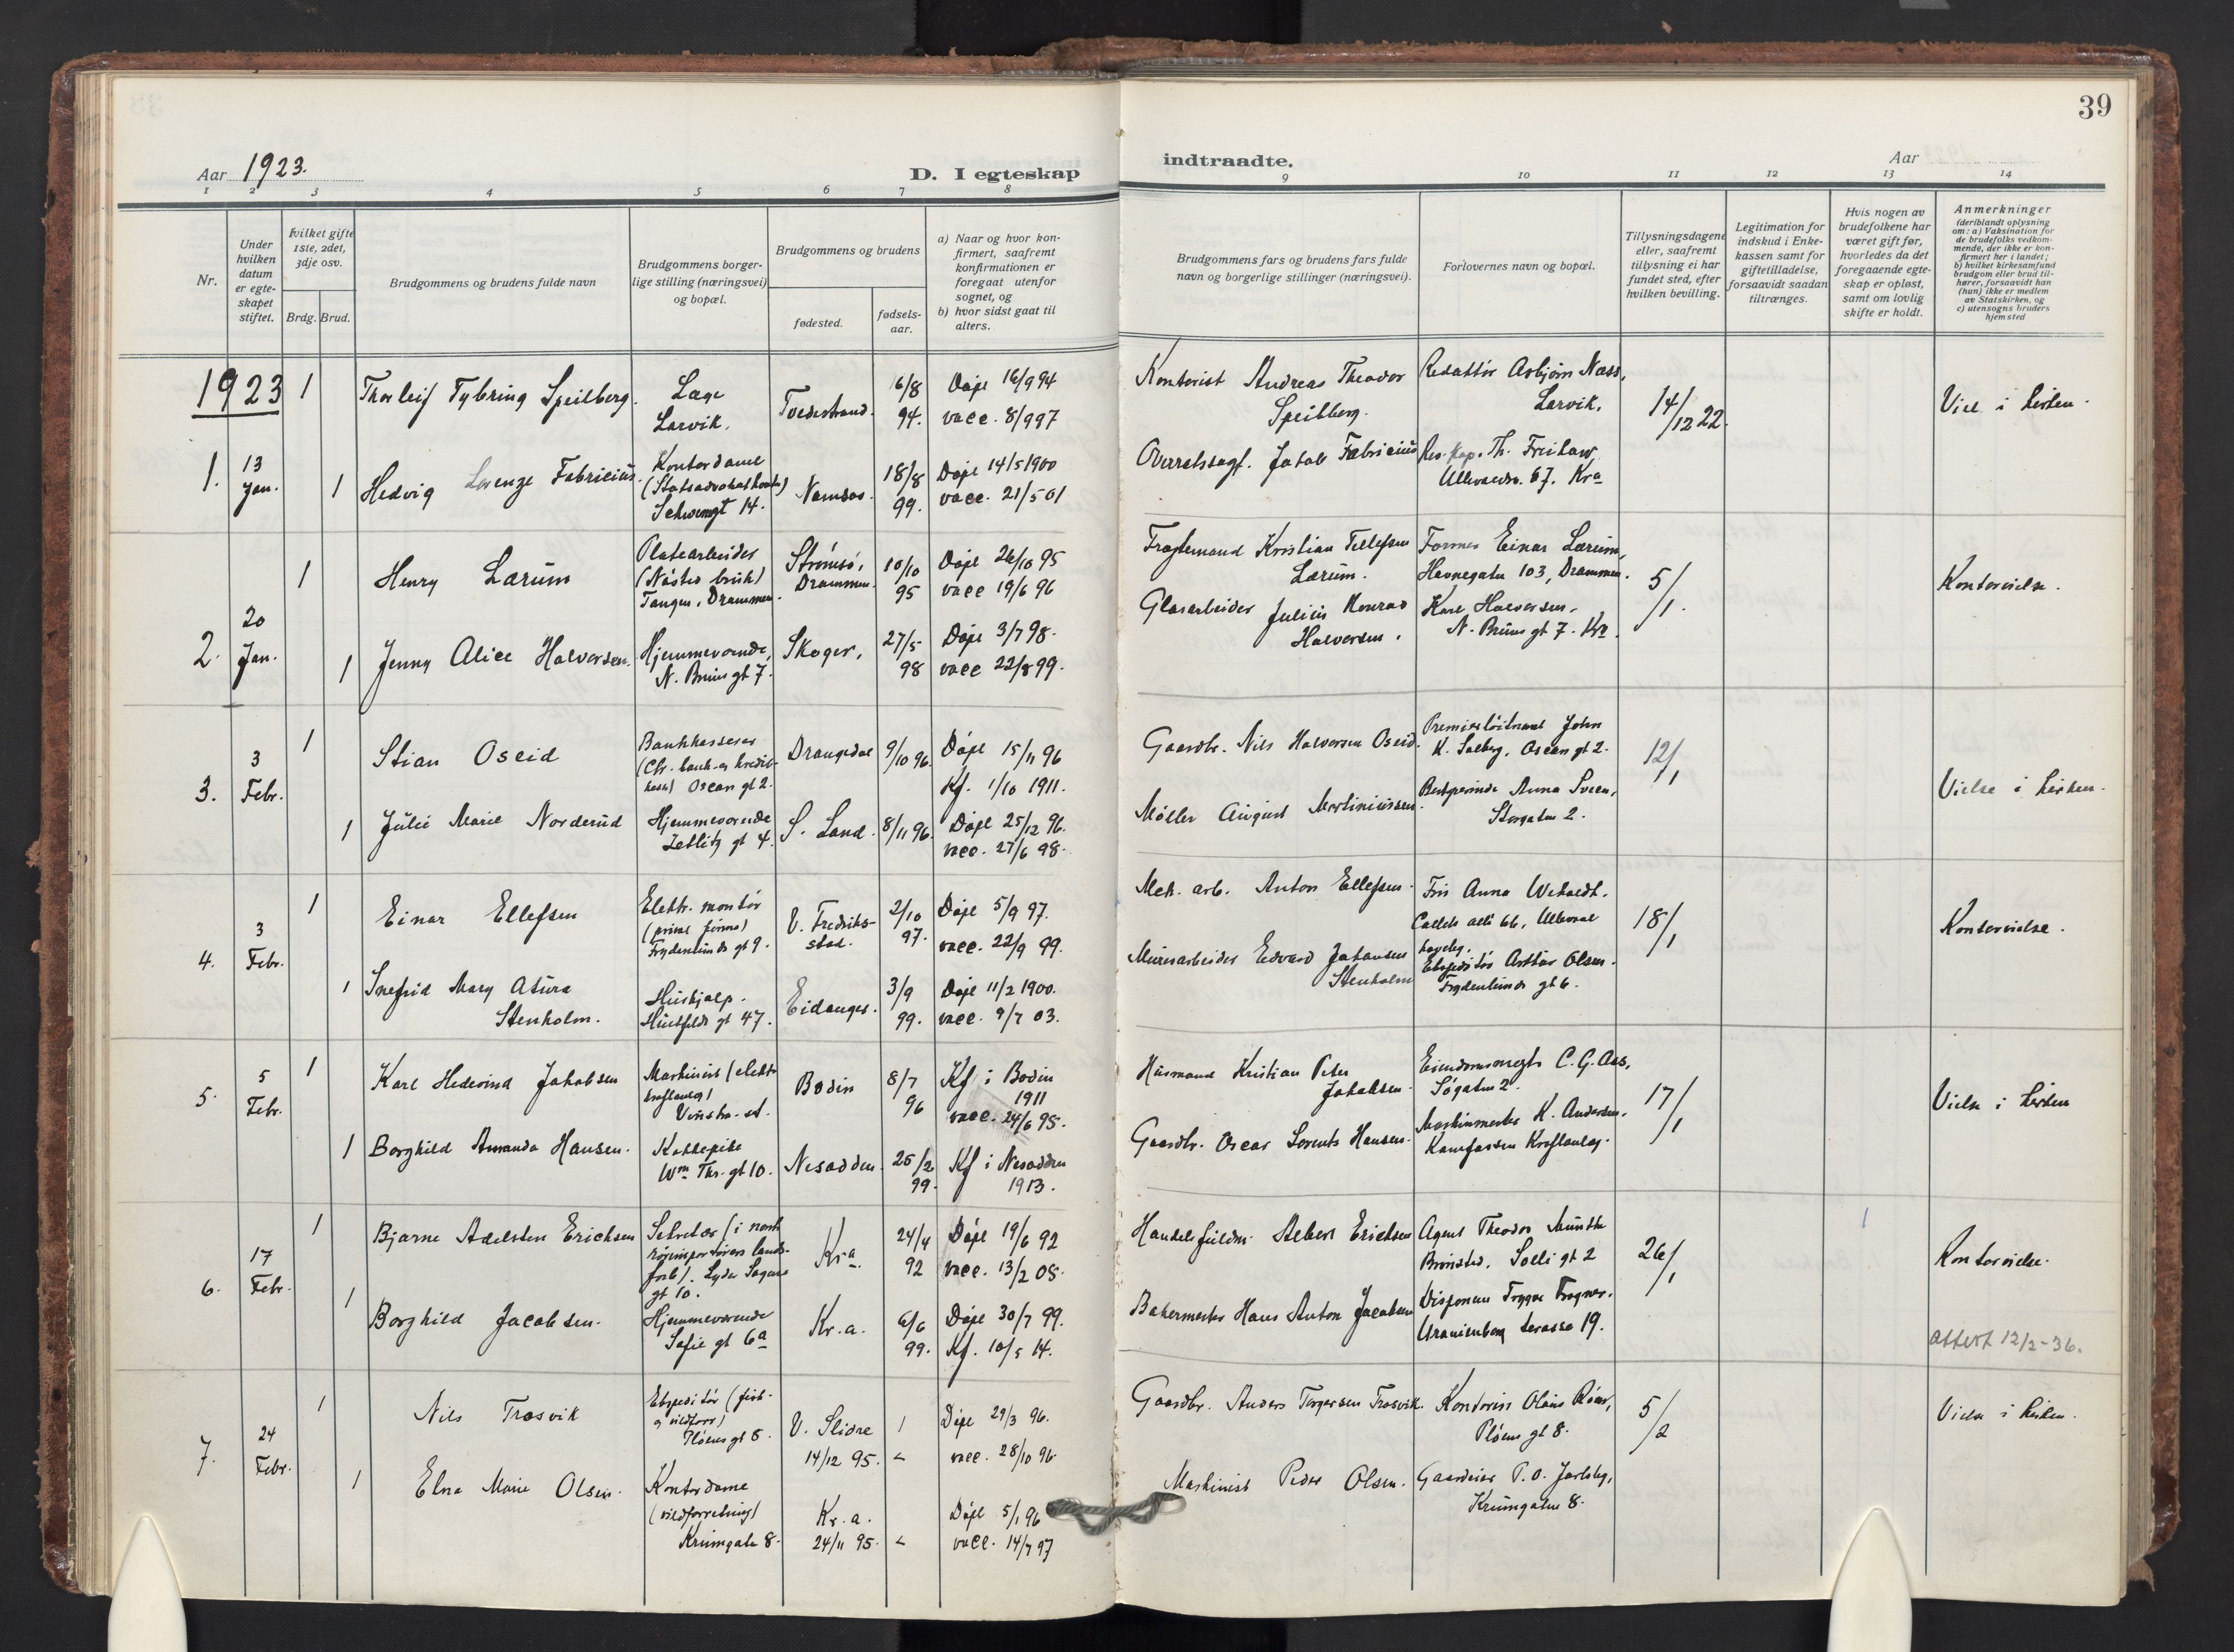 39
Aar 1923.
D. I egteskap
indtraadte.
Aar
1 2 3 4 5 6 7 8 9 10 11 12 13 14
Nr.
Under hvilken datum er egteskapet stiftet.
hvilket gifte 1ste, 2det, 3dje osv.
Brdg. Brud.
Brudgommens og brudens fulde navn
Brudgommens borgerlige stilling (næringsvei) og bopæl.
Brudgommens og brudens
fødested.
fødselsaar.
a) Naar og hvor konfirmert, saafremt konfirmationen er foregaat utenfor sognet, og
b) hvor sidst gaat til alters.
Brudgommens fars og brudens fars fulde navn og borgerlige stillinger (næringsvei).
Forlovernes navn og bopæl.
Tillysningsdagene eller, saafremt tillysning ei har fundet sted, efter hvilken bevilling.
Legitimation for indskud i Enkekassen samt for giftetilladelse, forsaavidt saadan tiltrænges.
Hvis nogen av brudefolkene har været gift før, hvorledes da det foregaaende egteskap er opløst, samt om lovlig skifte er holdt.
Anmerkninger
(deriblandt oplysning om: a) Vaksination for de brudefolks vedkommende, der ikke er konfirmert her i landet; b) hvilket kirkesamfund brudgom eller brud tilhører, forsaavidt han (hun) ikke er medlem av Statskirken, og c) utensogns bruders hjemsted
1923
1. 13 Jan.
1 Thorleif Tybring Speilberg. Læge Larvik. Tvedestrand. 6/8 94. Døpt 16/9 94 vacc. 8/9 97
Kontorist Andreas Theodor Speilberg. Redaktør Asbjørn Næss, Larvik. 14/12 22. Viel i kirken.
1 Hedvig Lorenze Fabricius. Kontordame (Statsadvokatkontor) Schwensgt 14. Namsos. 18/8 99. Døpt 14/5 1900 vacc. 21/5 01
Overretssagf. Jakob Fabricius Res. kap. Th. Ullevaldsv. 67. Kra
2. 20 Jan.
1 Henry Lærum Platearbeider (Nøsted bruk) Tangen, Drammen. Strømsø, Drammen. 10/10 95 Døpt 26/10 95 vacc 19/6 96
Fragtemand Kristian Tellefsen Lærum. Former Einar Lærum, Havnegaten 103, Drammen. 5/1. Kontorvielse.
1 Jenny Alice Halvorsen. Hjemmeværende, N. Bruns gt 7. Skoger. 27/5 98 Døpt 3/7 98. vacc 22/8 99.
Glasarbeider Julius Konrad Halvorsen. Karl Halvorsen, N. Bruns gt 7. Kra.
3. 3 Febr.
1 Stian Oseid Bankkasserer (Chr. bank- og kreditkasse) Oscars gt 2. Drangedal 9/10 96. Døpt 15/11 96 Kf. 1/10 1911.
Gaardbr. Nils Halvorsen Oseid. Premierløitnant John K. Solberg, Oscars gt 2. 12/1 Vielse i kirken.
1 Julie Marie Norderud Hjemmeværende Zetlitz gt 4. S. Land. 8/11 96. Døpt 25/12 96. vacc. 27/6 98.
Møller August Martiniussen. Bestyrerinde Anna Sveen, Storgaten 2.
4. 3 Febr.
1 Einar Ellefsen Elektr. montør (privat firma) Frydenlunds gt 9. V. Fredrikstad. 2/10 97. Døpt 5/9 97. vacc. 22/9 99.
Mek. arb. Anton Ellefsen. Fru Anna alle 66, Ulleval haveby. 18/1 Kontorvielse.
1 Snefrid Mary Asura Stenholm. Hushjælp. Huitfeldts gt 47. Eidanger. 3/9 99. Døpt 11/2 1900. vacc. 9/7 03.
Murerarbeider Edvard Johansen Stenholm Ekspeditør Arthur Olsen. Frydenlunds gt 6.
5. 5 Febr.
1 Karl Hedevind Jakobsen Maskinist (elektr kraftanlæg) Vinstra. st. Bodin 8/7 96 Kf i Bodin 1911 vacc. 24/6 98.
Husmand Kristian Peter Jakobsen Eiendomsmegler C. G. Aas, Søgaten 2. 17/1 Vielse i kirken
1 Borghild Amanda Hansen. Kokkepike Wm Thr. gt 10. Nesodden. 25/2 99. Kf i Nesodden 1913.
Gaardbr. Oscar Lorents Hansen. Maskinmester K. Andersen. Kraftanlæg.
6. 17 Febr.
1 Bjarne Adelsten Erichsen Sekretær (i norsk landsforb). Lyder Sagens gt 10. Kra. 24/4 92 Døpt 19/6 92 vacc. 13/2 05.
Handelsfuldm. Albert Erichsen Agent Theodor Munthe Brunsted, Solli gt 2 26/1 1 Kontorvielse.
1 Borghild Jacobsen. Hjemmeværende Sofie gt 6a Kr.a. 6/6 99. Døpt 30/7 99. Kf. 10/5 14.
Bakermester Hans Anton Jacobsen Disponent Trygve Uranienborg terasse 19.
attest 12/2-36.
7. 24 Febr.
1 Nils Trosvik Ekspeditør (fisk- og vildforr) Pløens gt 8. V. Slidre 14/12 95. Døpt 29/3 96. vacc. 28/10 96.
Gaardbr. Anders Torgersen Trosvik. Kontorist Olaus Pløens gt 8. 5/2 Vielse i kirken.
1 Elna Marie Olsen. Kontordame (vildforretning) Krumgaten 8. Kr.a. 24/11 95. Døpt 5/1 96 vacc. 14/7 97
Maskinist Peder Olsen. Gaardeier P. O. Jarlsby, Krumgaten 8.